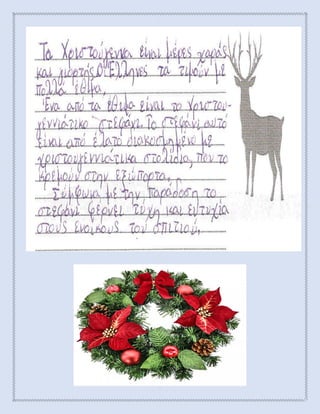 Τα Χριστούγεννα είναι μέρες χαράς
και γιορτής. Οι Έλληνες τα τιμούν με
πολλά έθιμα.
Ένα από τα έθιμα είναι το χριστου-
γεννιάτικο στεφάνι. Το στεφάνι αυτό
είναι από έλατο διακοσμημένο με
χριστουγεννιάτικα στολίδια, που το
κρεμούν στην εξώπορτα.
Σύμφωνα με την παράδοση το
στεφάνι φέρνει τύχη και ευτυχία
στους ενοίκους του σπιτιού.